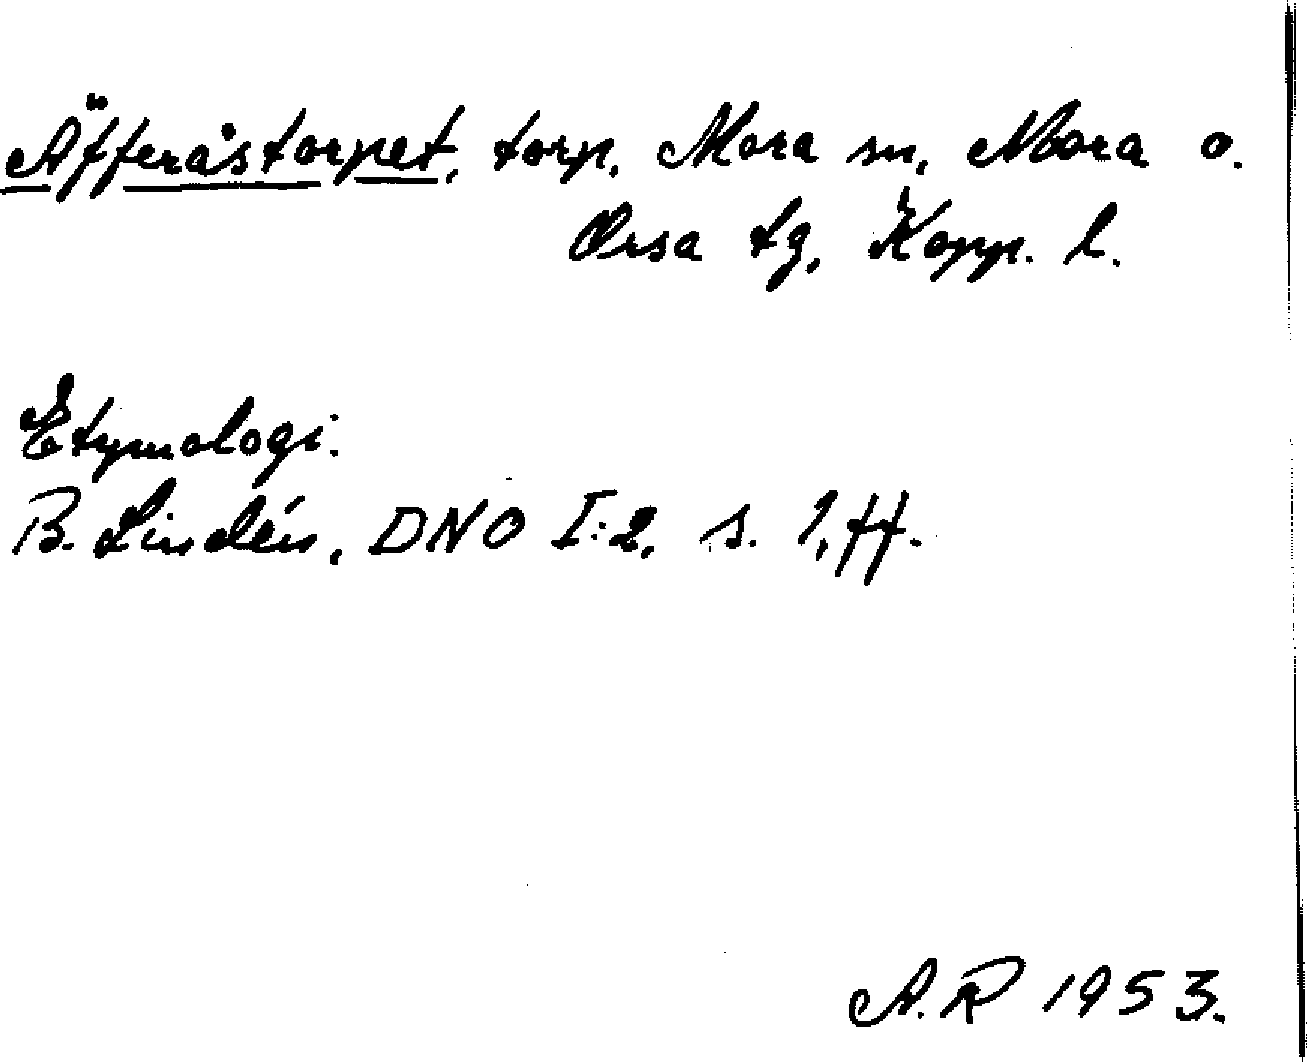 Äfferåstorpet, torp, Mora sn, Mora o.
Orsa tg, Kopp. l.
Etymologi.
B. Lindén, DNO I:2, s. 1, ff.
A.R 1953.